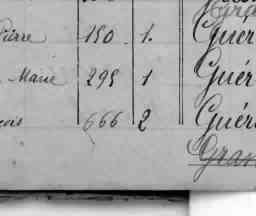 Pierre 150 1. Guér
Marie 295 1 Guér
666 2 Guér
Gran